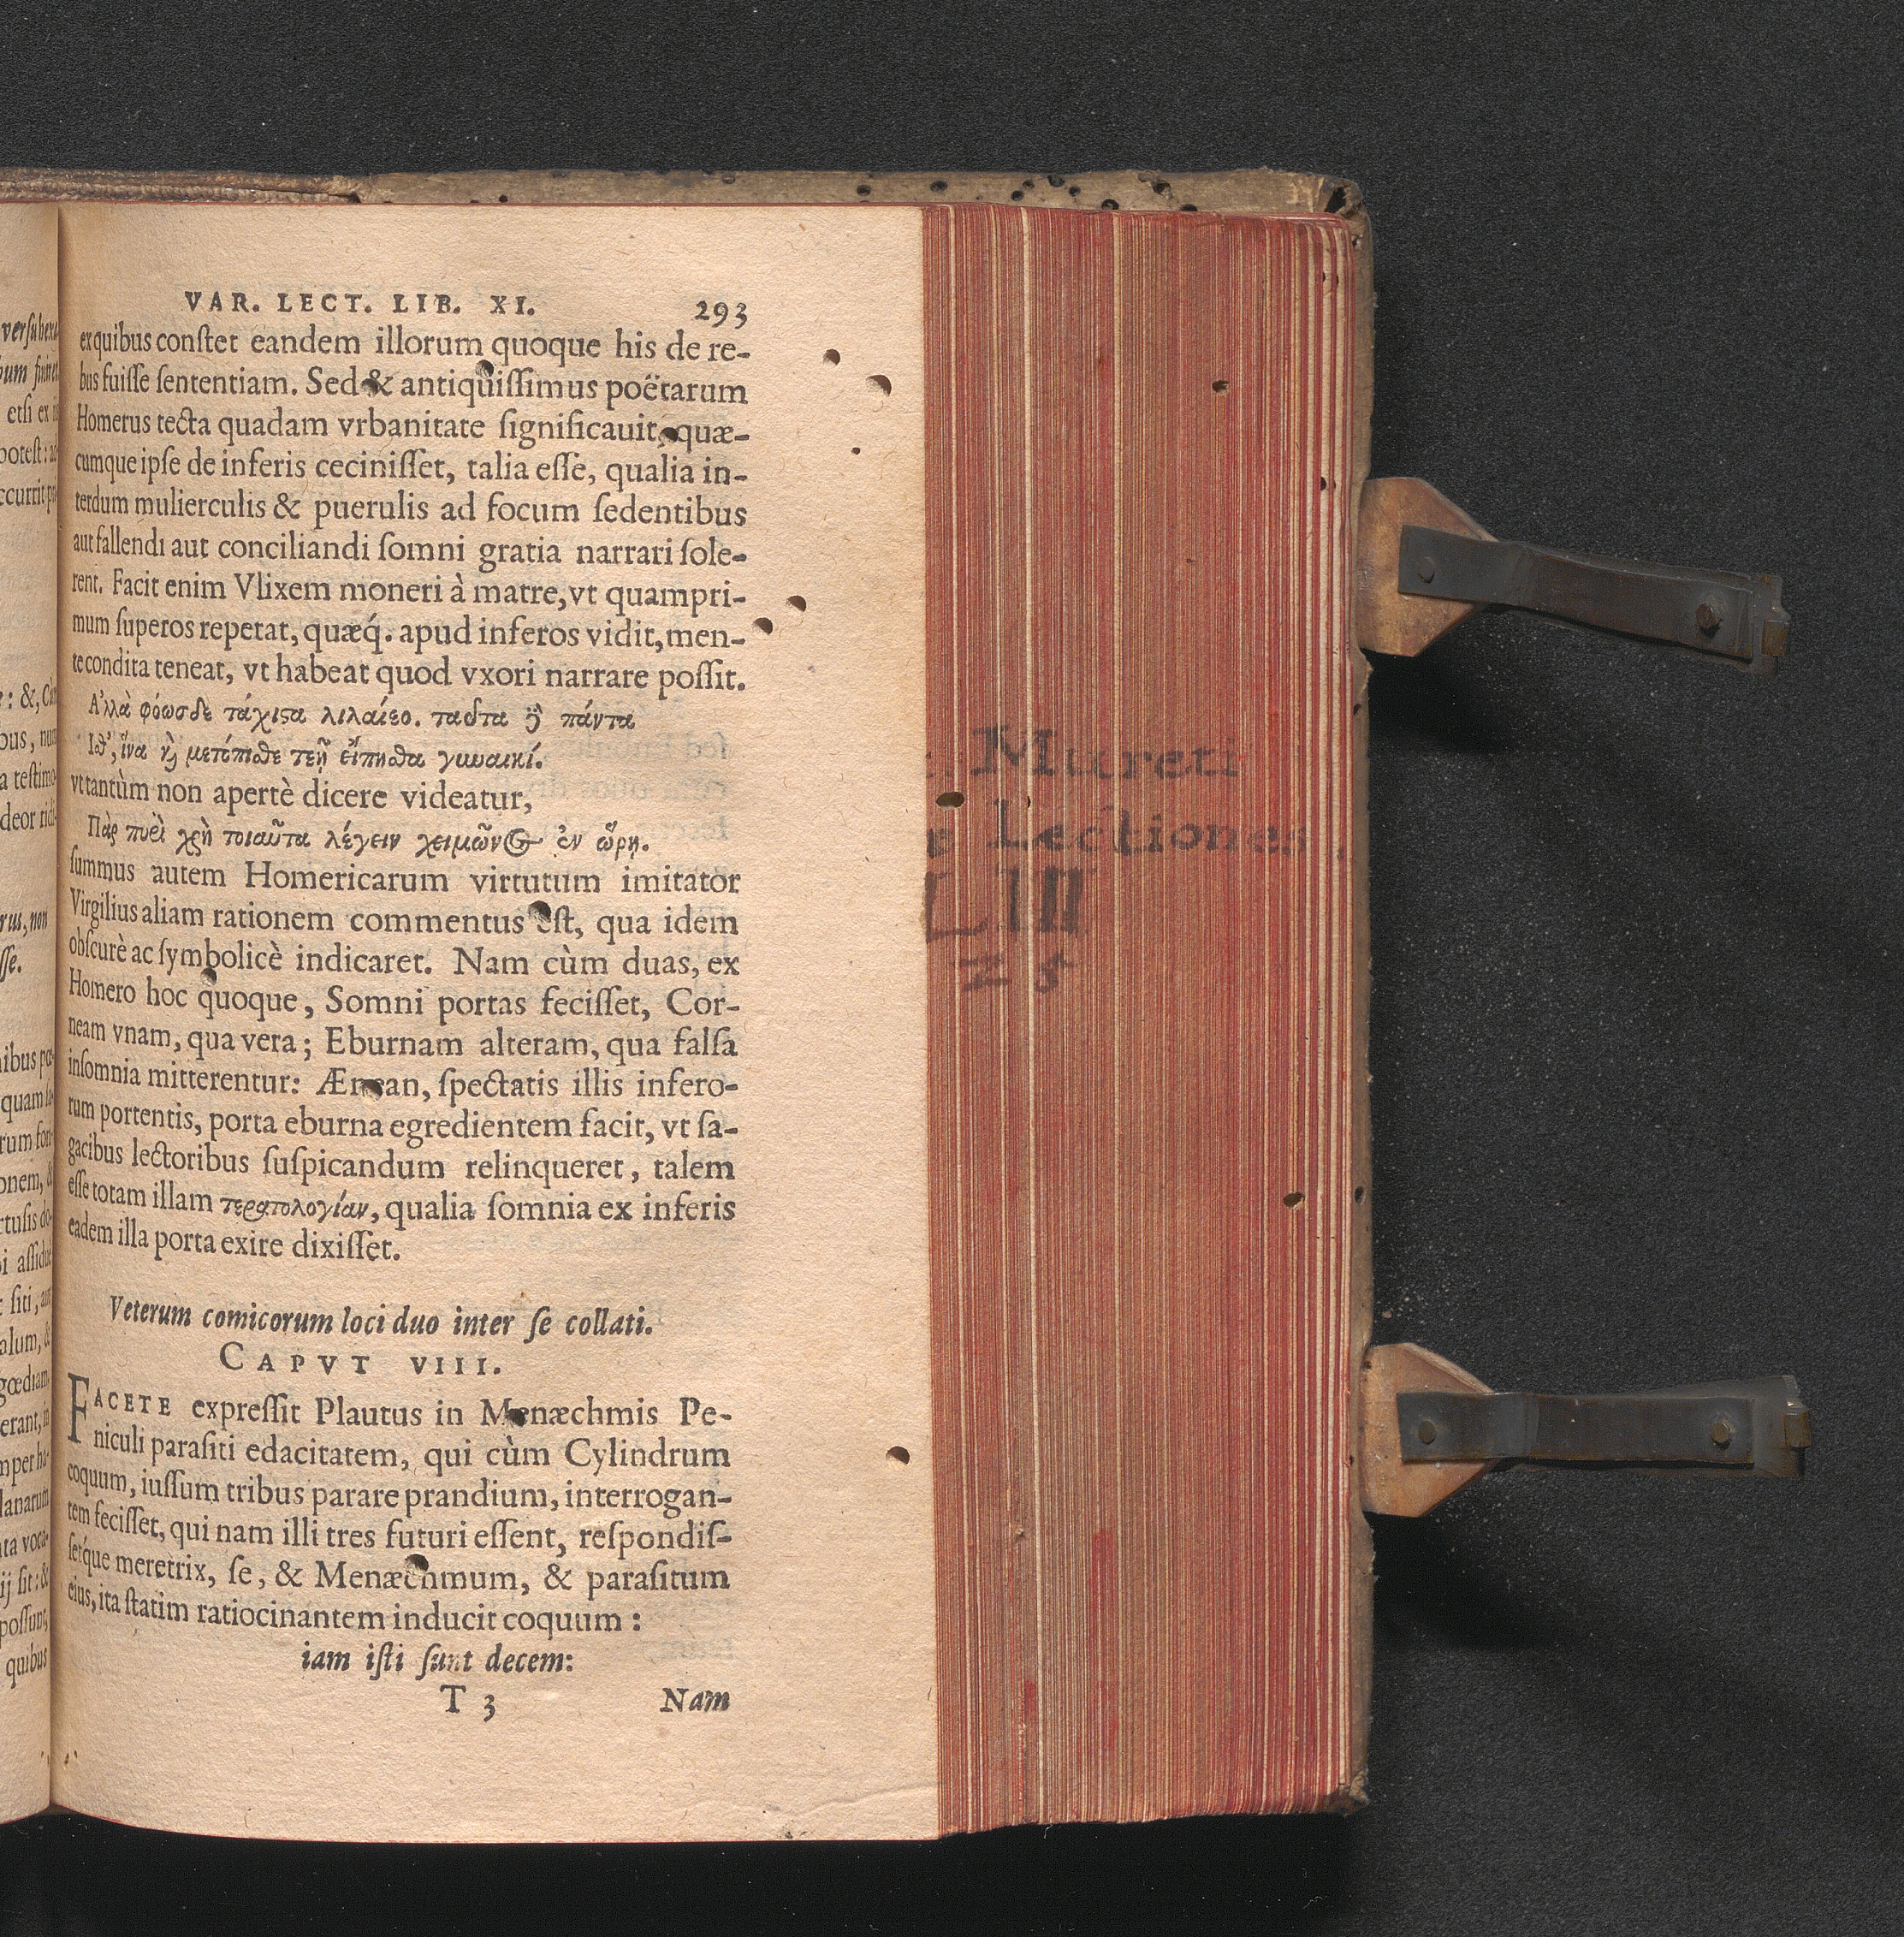 VAR. LECT. LIB. XI. 293
ex quibus conſtet eandem illorum quoque his de re-
bus fuiſſe ſententiam. Sed & antiquiſſimus poëtarum
Homerus tecta quadam vrbanitate ſignificauit, quæ-
cumque ipſe de inferis ceciniſſet, talia eſſe, qualia in-
terdum mulierculis & puerulis ad focum ſedentibus
aut fallendi aut conciliandi ſomni gratia narrari ſole-
rent. Facit enim Vlixem moneri à matre, vt quampri-
mum ſuperos repetat, quæq́. apud inferos vidit, men-
te condita teneat, vt habeat quod vxori narrare poſſit.
Α᾿λλὰ φόωσδε τάχιϛα λιλαίεο. ταῦτα δὲ πάντα
Ιϑ', ἵνα καὶ μετόπιϑε τεῇ εἴπῃϑα γυναικί.
vt tantùm non apertè dicere videatur,
Πὰρ πυεὶ χρὴ τοιαῦτα λέγειν χειμῶνος ἐν ὥρῃ.
ſummus autem Homericarum virtutum imitator
Virgilius aliam rationem commentus eſt, qua idem
obſcurè ac ſymbolicè indicaret. Nam cùm duas, ex
Homero hoc quoque, Somni portas feciſſet, Cor-
neam vnam, qua vera; Eburnam alteram, qua falſa
inſomnia mitterentur: Ænean, ſpectatis illis infero-
rum portentis, porta eburna egredientem facit, vt ſa-
gacibus lectoribus ſuſpicandum relinqueret, talem
eſſe totam illam τερατολογίαν, qualia ſomnia ex inferis
eadem illa porta exire dixiſſet.
Veterum comicorum loci duo inter ſe collati.
CAPVT VIII.
FACETE expreſſit Plautus in Menæchmis Pe-
niculi paraſiti edacitatem, qui cùm Cylindrum
coquum, iuſſum tribus parare prandium, interrogan-
tem feciſſet, qui nam illi tres futuri eſſent, reſpondiſ-
ſetque meretrix, ſe, & Menæchmum, & paraſitum
eius, ita ſtatim ratiocinantem inducit coquum:
iam iſti ſunt decem:
T 3 Nam
Mureti
Lectiones
LIII
25